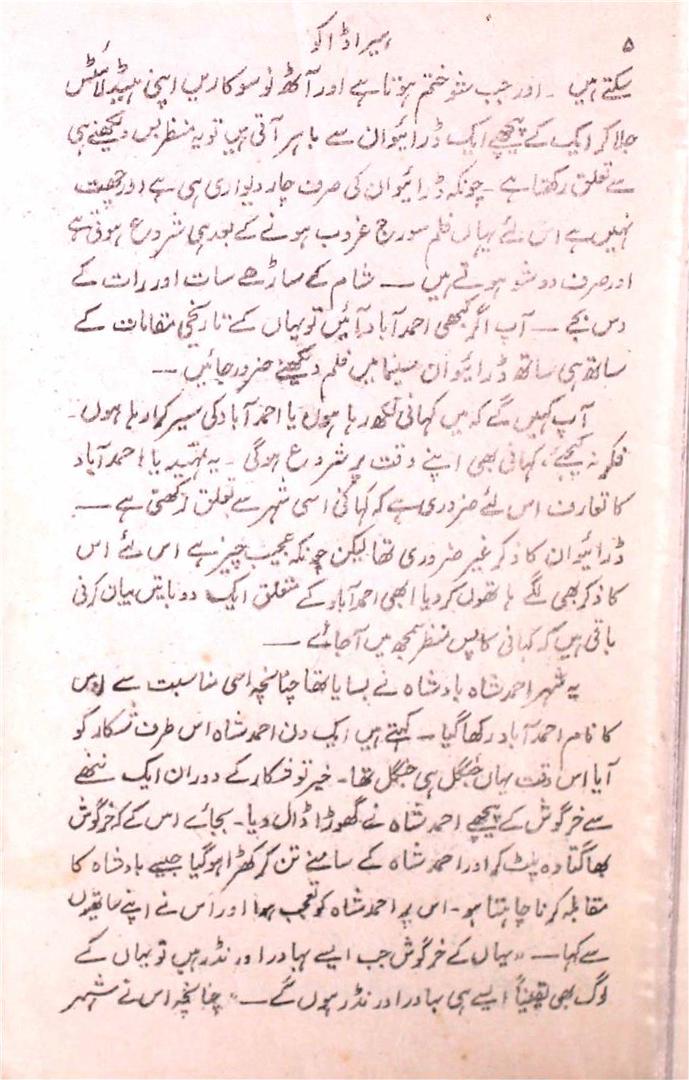 ۵
ہیرا ڈاکو
سکتے ہیں ۔ اور جب شو ختم ہوتا ہے اور آٹھ نو سو کاریں اپنی ہیڈ لائٹس
جلا کر ایک کے پیچھے ایک ڈرائیو ان سے باہر آتی ہیں تو یہ منظر بس دیکھنے ہی
سے تعلق رکھتا ہے ۔ چونکہ ڈرائیو ان کی صرف چار دیواری ہی ہے اور چھت
نہیں ہے اس لئے یہاں فلم سورج غروب ہونے کے بعد ہی شروع ہوتی ہے
اور صرف دو شو ہوتے ہیں — شام کے ساڑھے سات اور رات کے
دس بجے — آپ اگر کبھی احمد آباد آئیں تو یہاں کے تاریخی مقامات کے
ساتھ ہی ساتھ ڈرائیو ان سینما میں فلم دیکھنے ضرور جائیں —
آپ کہیں گے کہ میں کہانی لکھ رہا ہوں یا احمد آباد کی سیر کرا رہا ہوں ۔
فکر نہ کیجئے، کہانی بھی اپنے وقت پر شروع ہوگی ۔ یہ تمہید یا احمد آباد
کا تعارف اس لئے ضروری ہے کہ کہانی اسی شہر سے تعلق رکھتی ہے —
ڈرائیو ان کا ذکر غیر ضروری تھا لیکن چونکہ عجیب چیز ہے اس لئے اس
کا ذکر بھی لگے ہاتھوں کر دیا ابھی احمد آباد کے متعلق ایک دو باتیں بیان کرنی
باقی ہیں کہ کہانی کا پس منظر سمجھ میں آجائے —
یہ شہر احمد شاہ بادشاہ نے بسایا تھا چنانچہ اسی مناسبت سے اس
کا نام احمد آباد رکھا گیا ۔ کہتے ہیں ایک دن احمد شاہ اس طرف شکار کو
آیا اس وقت یہاں جنگل ہی جنگل تھا ۔ خیر تو شکار کے دوران ایک ننھے
سے خرگوش کے پیچھے احمد شاہ نے گھوڑا ڈال دیا ۔ بجائے اس کے کہ خرگوش
بھاگتا وہ پلٹ کر اور احمد شاہ کے سامنے تن کر کھڑا ہوگیا جیسے بادشاہ کا
مقابلہ کرنا چاہتا ہو ۔ اس پر احمد شاہ کو تعجب ہوا اور اس نے اپنے ساتھیوں
سے کہا — "یہاں کے خرگوش جب ایسے بہادر اور نڈر ہیں تو یہاں کے
لوگ بھی یقیناً ایسے ہی بہادر اور نڈر ہوں گے — " چنانچہ اس نے شہر